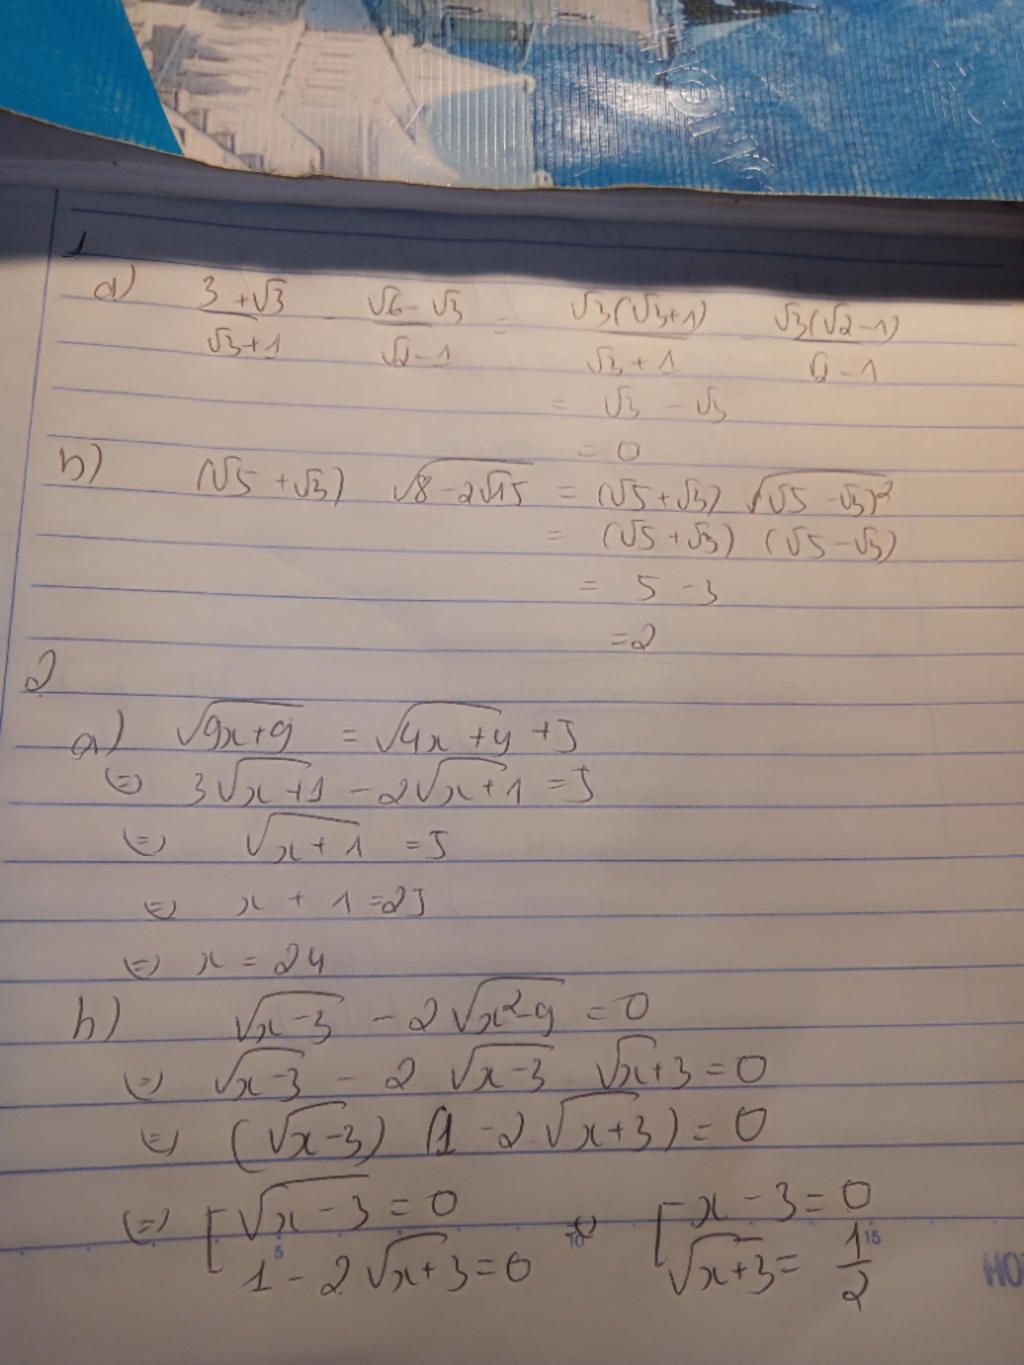 1
a) (3+√3)/(√3+1) - (√6-√3)/(√2-1) = √3(√3+1)/(√3+1) - √3(√2-1)/(√2-1)
= √3 - √3
= 0
b) (√5+√3) √(8-2√15) = (√5+√3) √(√5-√3)²
= (√5+√3) (√5-√3)
= 5 - 3
= 2
2
a) √(9x+9) = √(4x+4) + 5
⇔ 3√(x+1) - 2√(x+1) = 5
⇔ √(x+1) = 5
⇔ x + 1 = 25
⇔ x = 24
b) √(x-3) - 2√(x²-9) = 0
⇔ √(x-3) - 2.√(x-3).√(x+3) = 0
⇔ (√(x-3)) (1 - 2.√(x+3)) = 0
⇔ [ √(x-3) = 0 ⇔ [ x - 3 = 0
1 - 2√(x+3) = 0 √(x+3) = 1/2
5 10 15